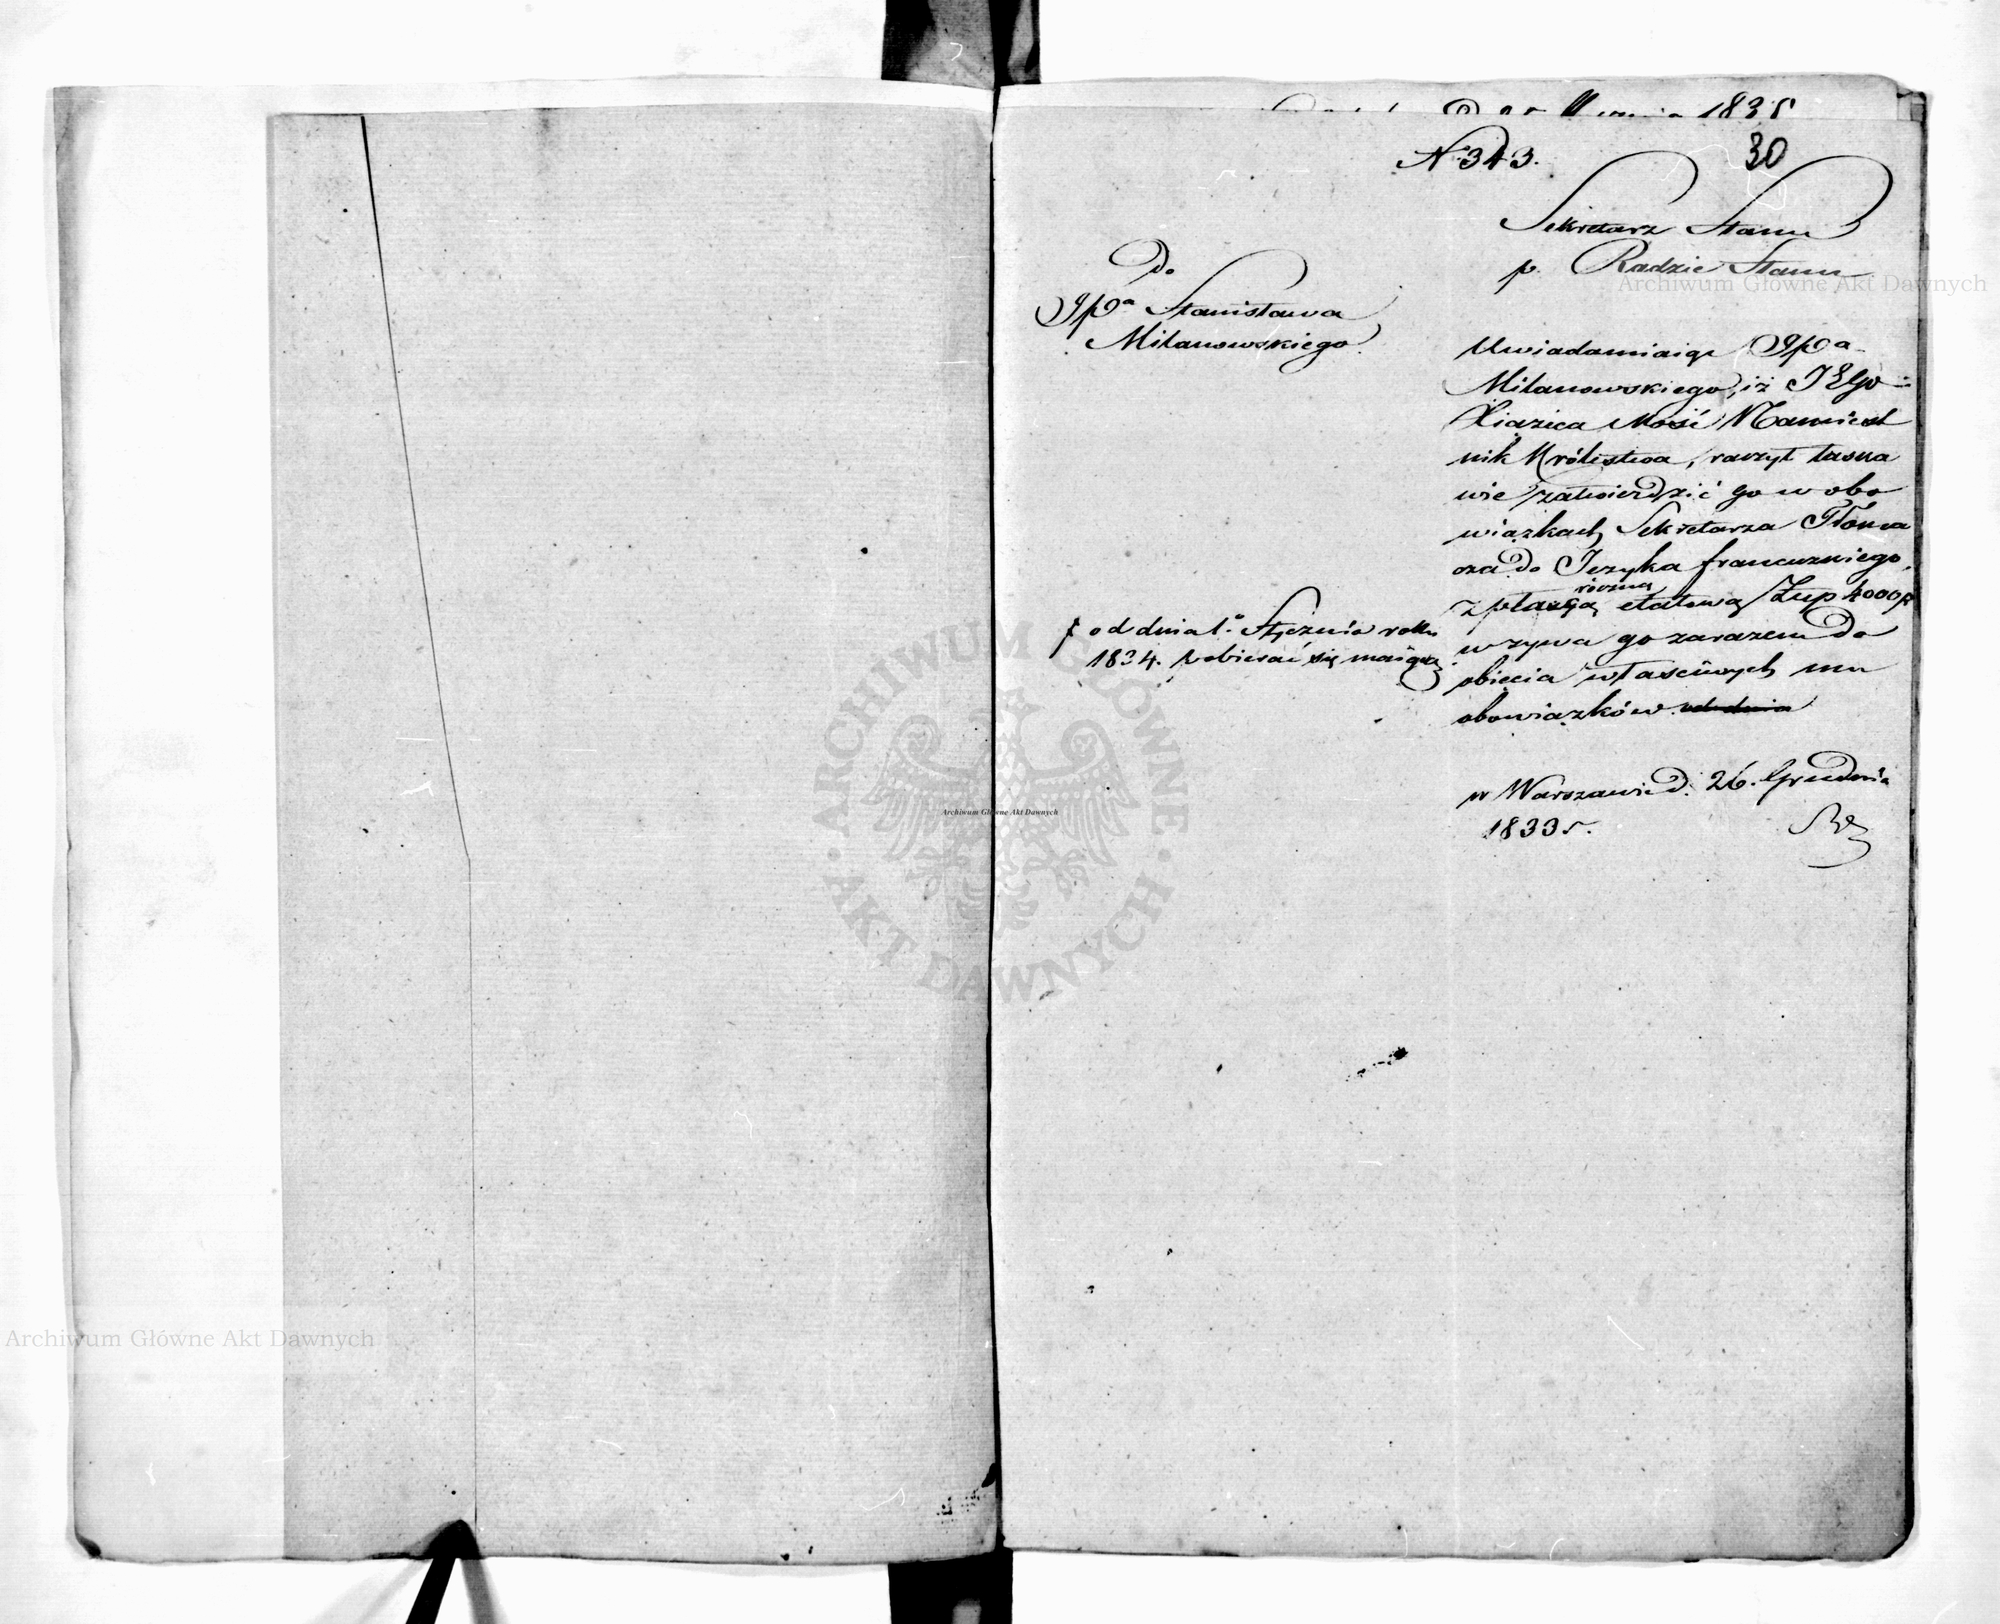 1835
N 343.
30
Sekretarz Stanu
p. Radzie Stanu
Do
JPa Stanisława
Milanowskiego.
Uwiadamiaiąc JPa
Milanowskiego, iż JEgo
Xiążęca Mość Namiest
nik Królestwa, raczył łaska
wie zatwierdzić go w obo
wiązkach Sekretarza Tłóma
cza do Języka francuzkiego,
z płacą roczną etatową Złp 4000
wzywa go zarazem do
obięcia właściwych mu
obowiązków od dnia
od dnia 1o Stycznia roku
1834. pobierać się maiącą
w Warszawie d. 26. Grudnia
1833 r.
Archiwum Główne Akt Dawnych
ARCHIWUM GŁÓWNE
AKT DAWNYCH
Archiwum Główne Akt Dawnych
Archiwum Główne Akt Dawnych